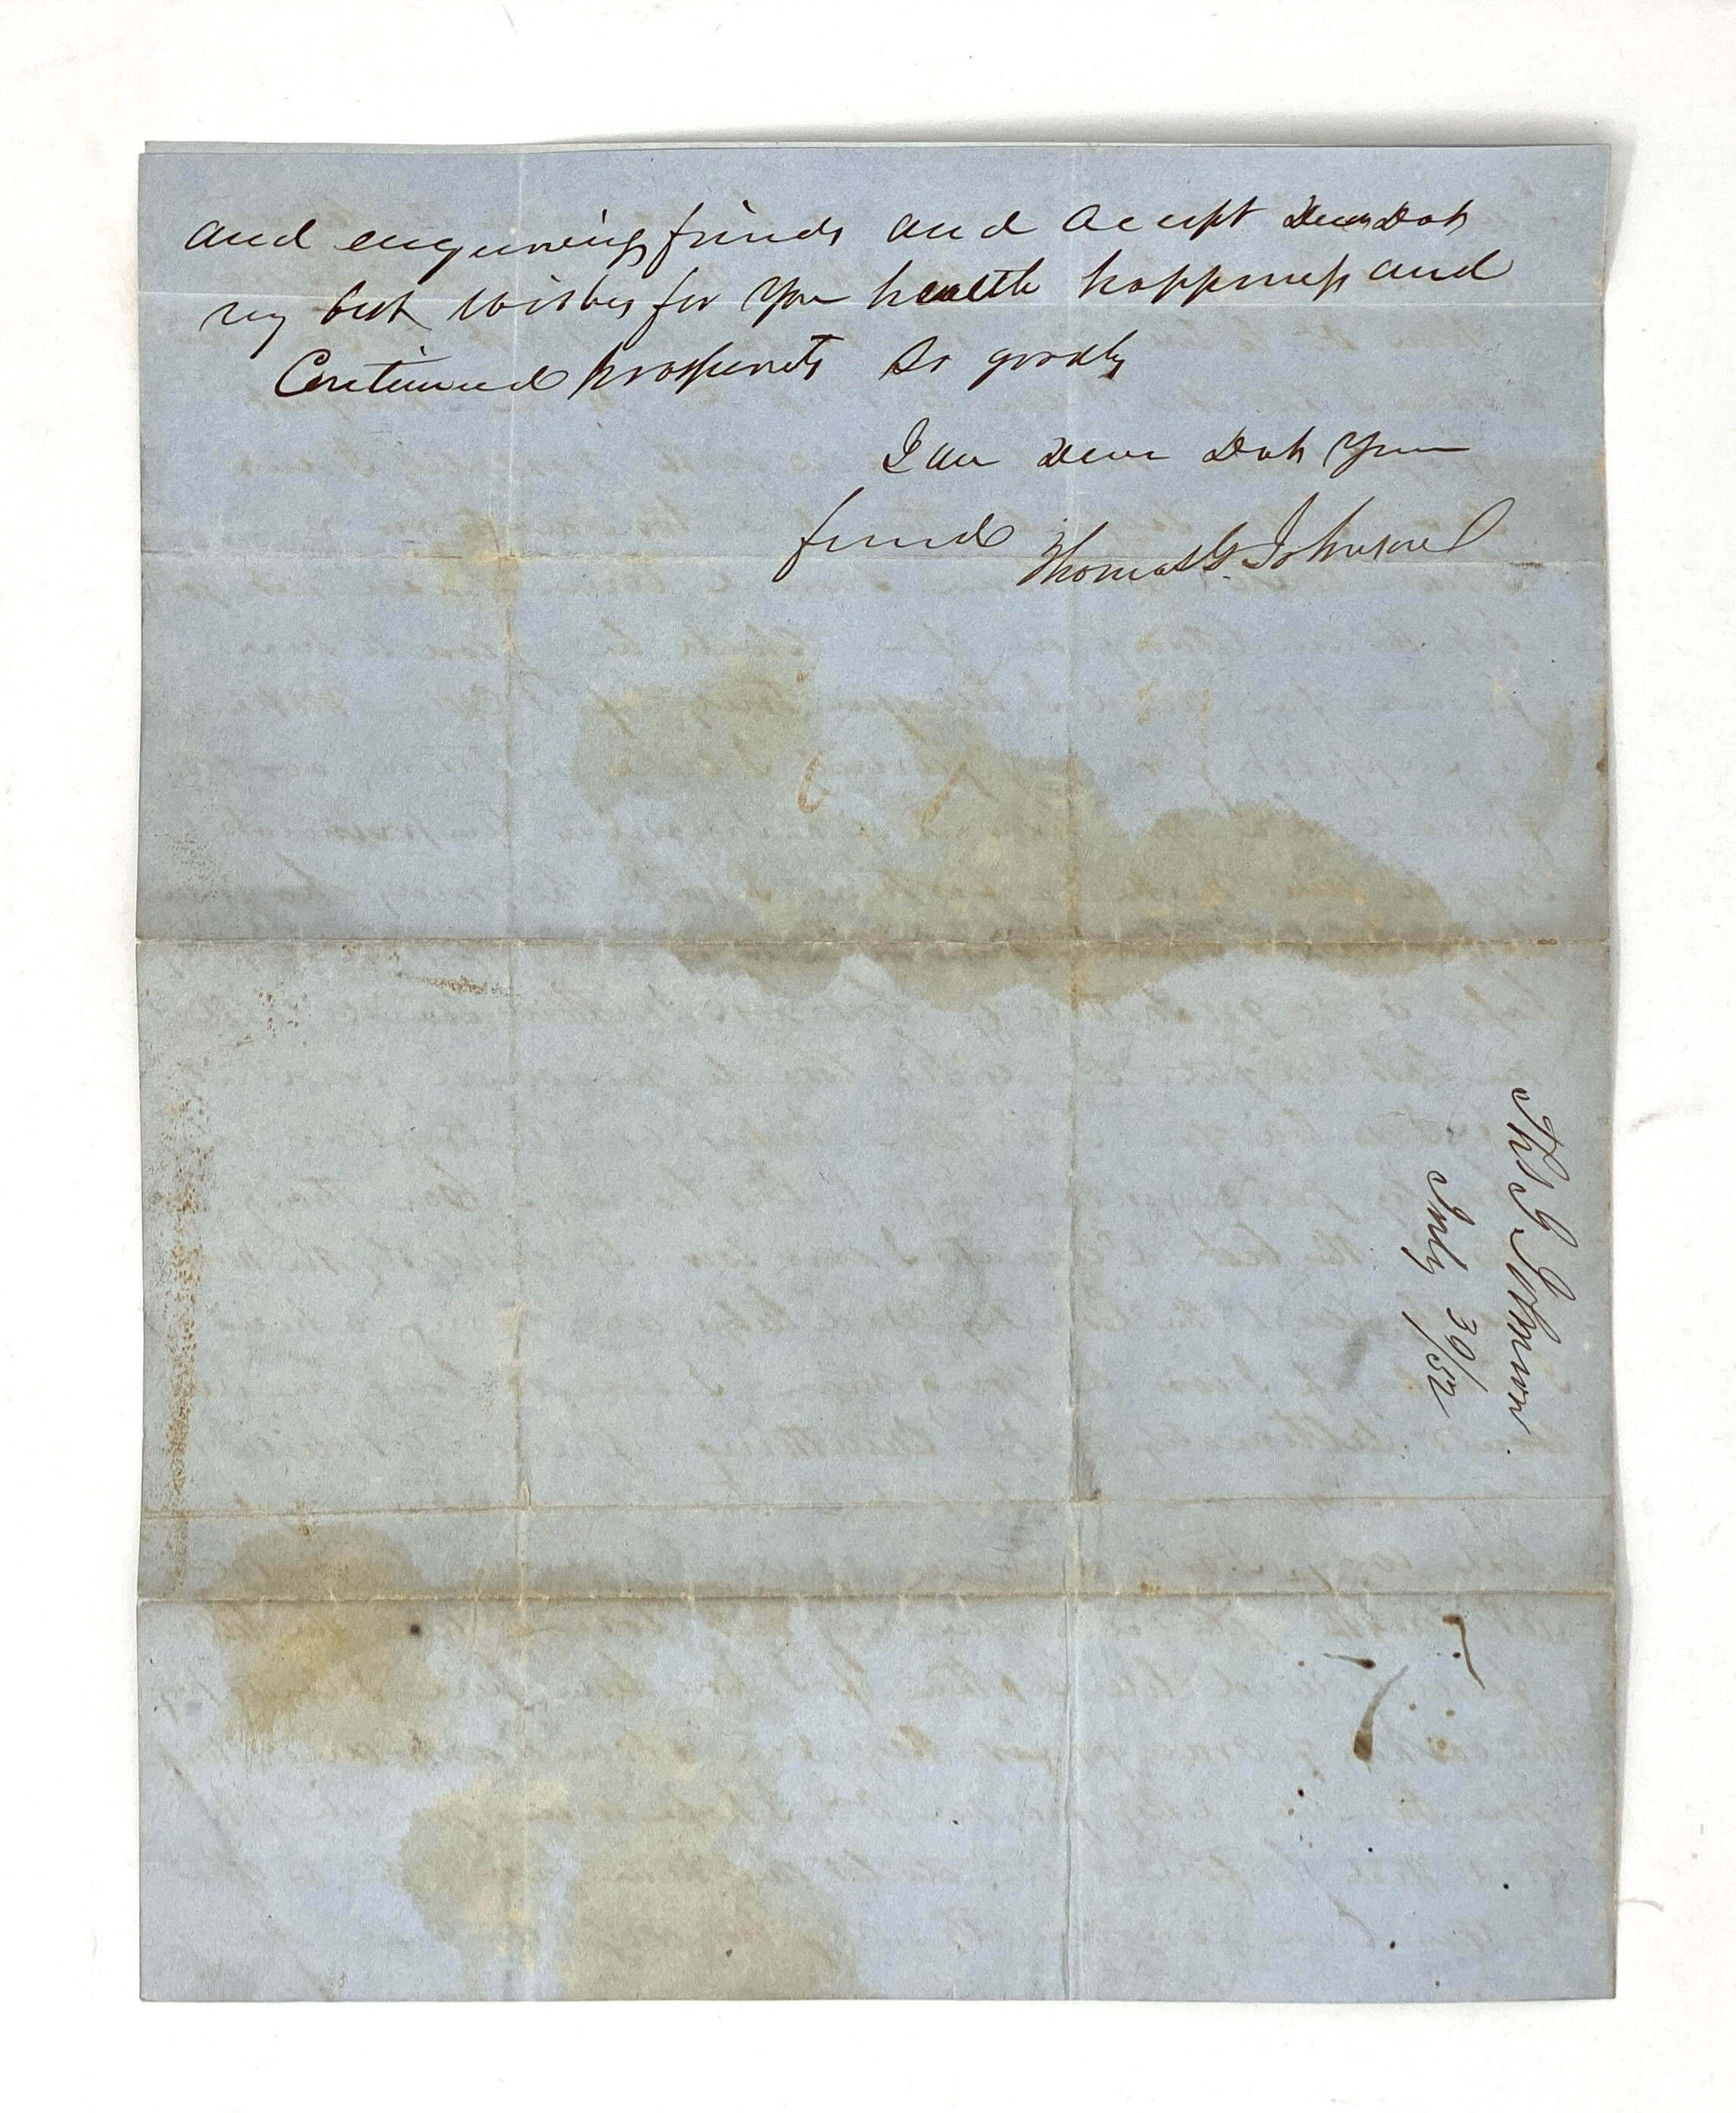 and enquiring friends and accept Dear Doct
my best wishes for your health happiness and
Continued prosperity So goodby
I am Dear Doct Your
friend Thomas G. Johnson
Ths G. Johnson
July 30/52